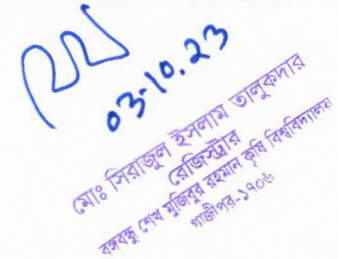 03-10.23
মোঃ সিরাজুল ইসলাম তালুকদার
রেজিস্ট্রার
বঙ্গবন্ধু শেখ মুজিবুর রহমান কৃষি বিশ্ববিদ্যালয়
গাজীপুর-১৭০৬